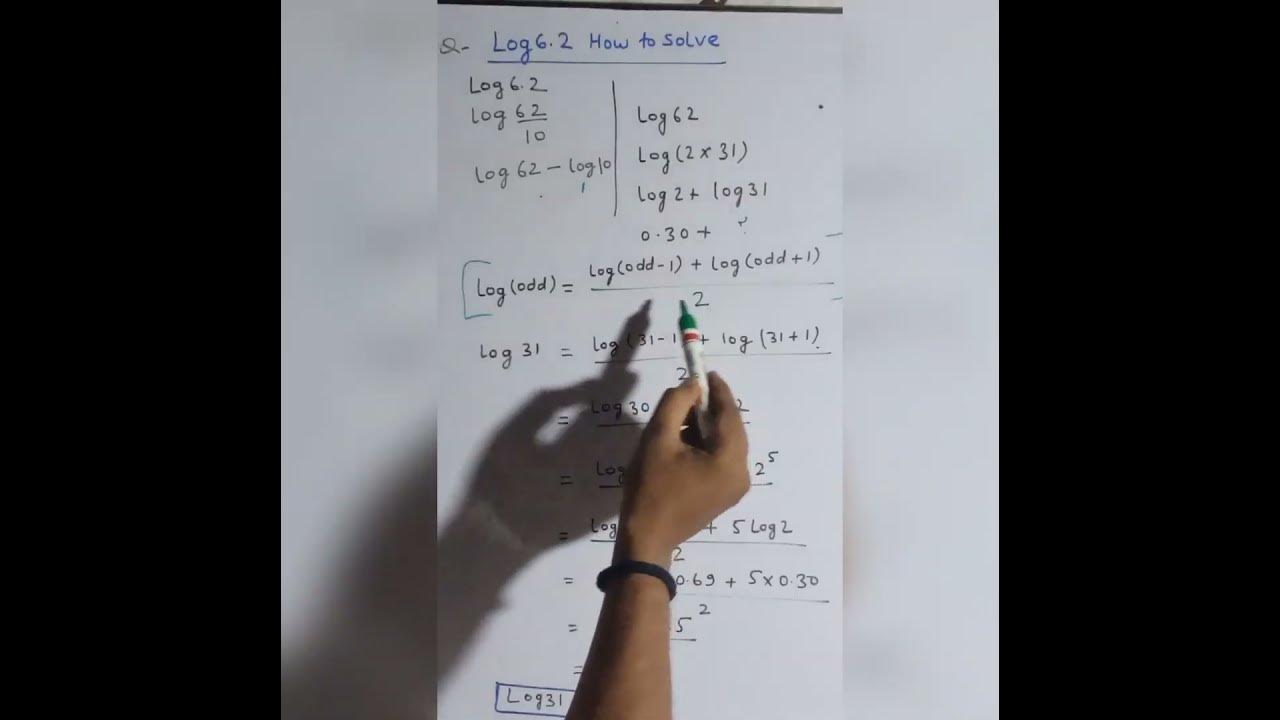 Q- Log 6.2 How to solve
Log 6.2
log 62/10
log 62 – log 10
1
Log 62
Log (2 × 31)
Log 2 + log 31
0.30 + ?
Log (odd) = log (odd - 1) + log (odd + 1) / 2
Log 31 = log (31 - 1) + log (31 + 1) / 2
= Log 30 2
= Log 2⁵
= log + 5 Log 2 / 2
= 0.69 + 5 × 0.30 / 2
= 5
=
Log 31